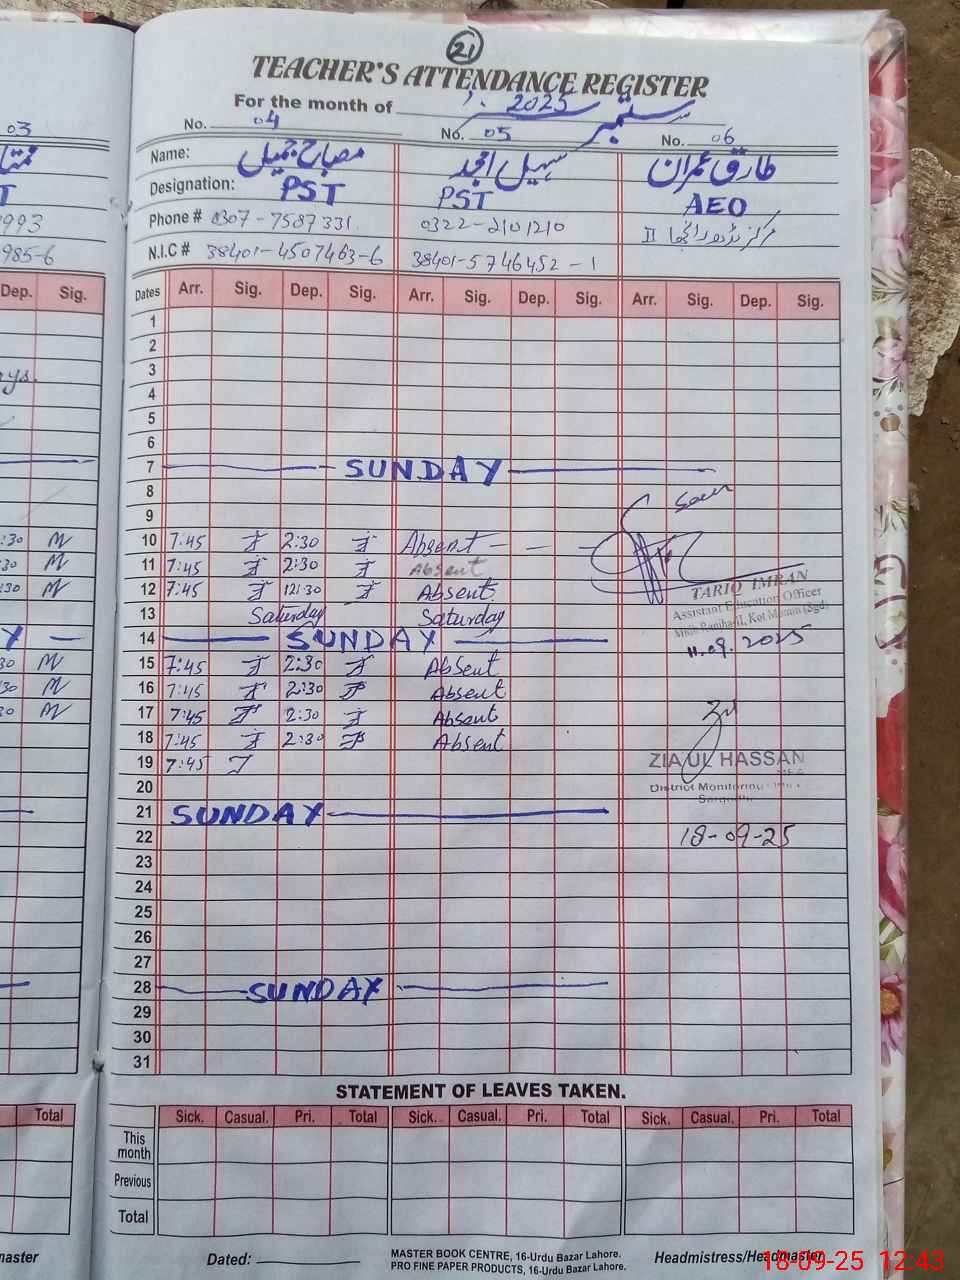 21
TEACHER'S ATTENDANCE REGISTER
For the month of ستمبر 2025
No. 04 No. 05 No. 06
03
Name: مصباح جمیل سہیل امجد طارق عمران
Designation: PST PST AEO
T
Phone # 0307-7587331 0322-2101210
993
N.I.C # 38401-4507463-6 38401-5746452-1
985-6
Dep. Sig. Dates Arr. Sig. Dep. Sig. Arr. Sig. Dep. Sig. Arr. Sig. Dep. Sig.
1
2
3
4
5
6
7 SUNDAY
8
9
10 7:45 2:30 Absent
:30
11 7:45 2:30 Absent
30
12 7:45 12:30 Absent
:30
13 Saturday Saturday
14 SUNDAY
Y
15 7:45 2:30 Absent
30
16 7:45 2:30 Absent
30
17 7:45 2:30 Absent
30
18 7:45 2:30 Absent
19 7:45
20
21 SUNDAY
22
23
24
25
26
27
28 SUNDAY
29
30
31
Seen
TARIQ IMRAN
Assistant Education Officer
11.09.2025
ZIA UL HASSAN
MEA
District Monitoring
18-09-25
STATEMENT OF LEAVES TAKEN.
Total Sick. Casual. Pri. Total Sick. Casual. Pri. Total Sick. Casual. Pri. Total
This month
Previous
Total
master
Dated:
MASTER BOOK CENTRE, 16-Urdu Bazar Lahore.
PRO FINE PAPER PRODUCTS, 16-Urdu Bazar Lahore.
Headmistress/Headmaster
18-09-25 12:43